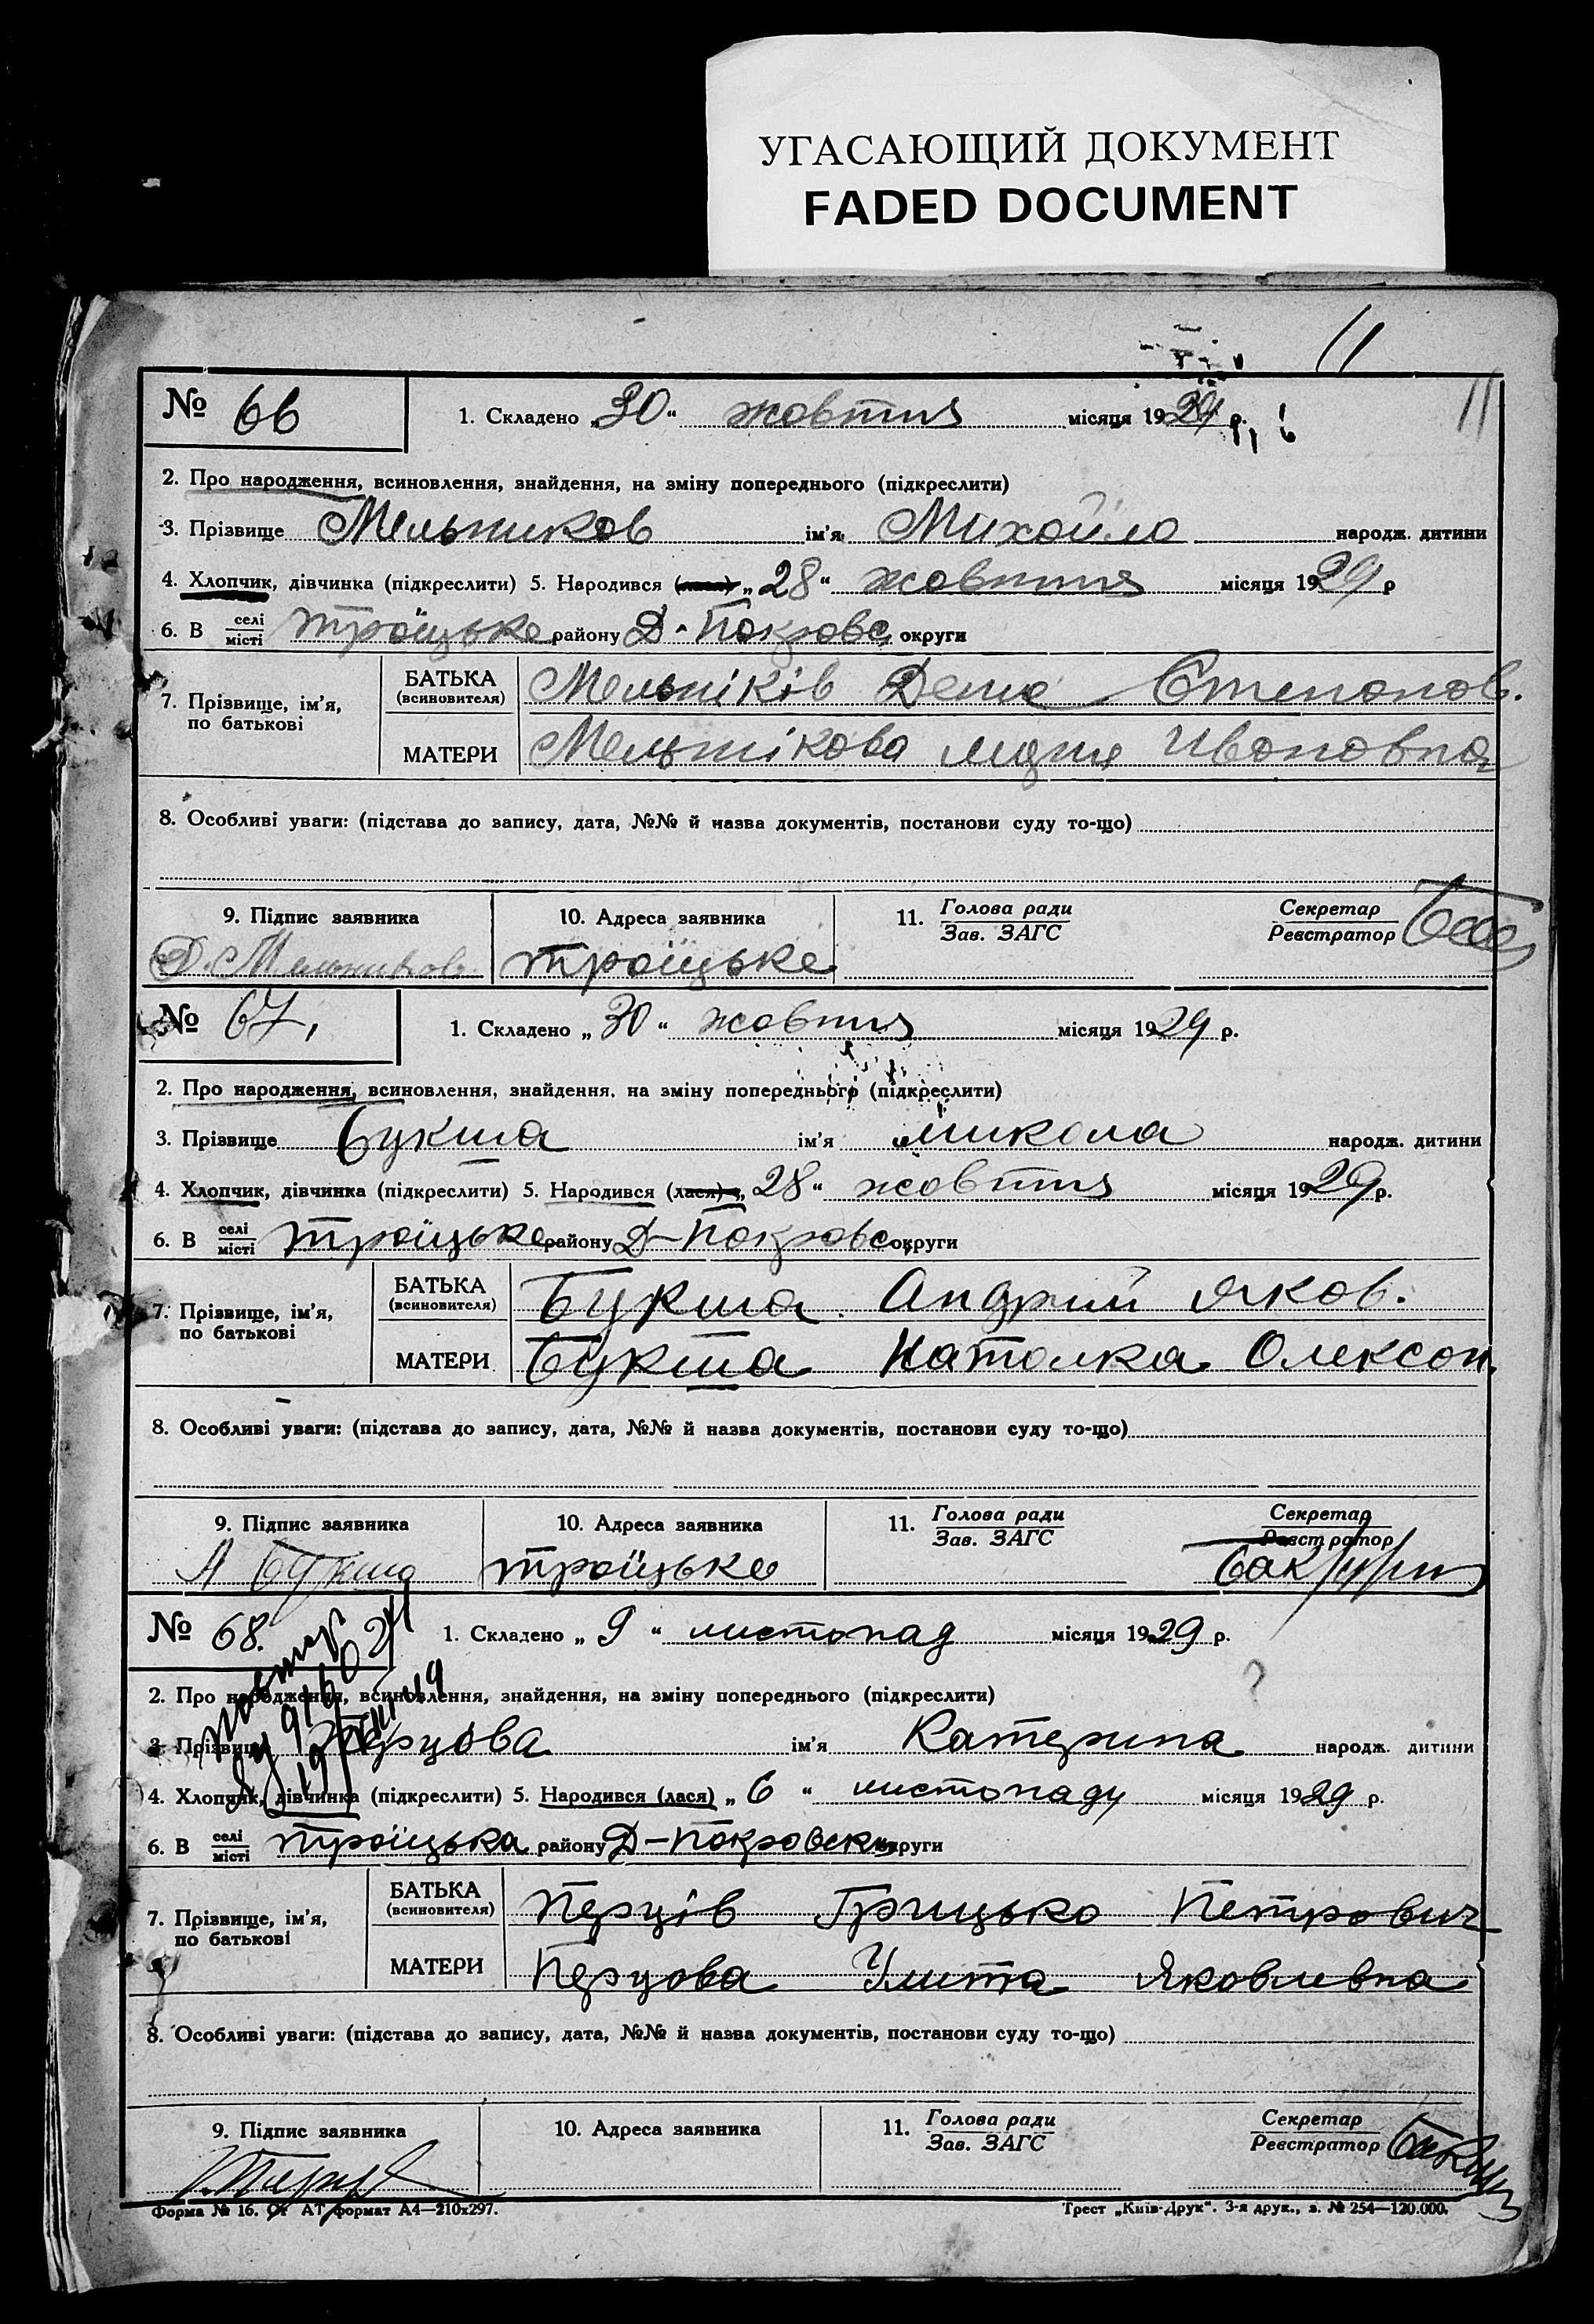 УГАСАЮЩИЙ ДОКУМЕНТ
FADED DOCUMENT
11
11
№ 66
1. Складено „30“ жовтня місяця 1929 р.
2. Про народження, всиновлення, знайдення, на зміну попереднього (підкреслити)
3. Прізвище Мельников ім'я Михайло народж. дитини
4. Хлопчик, дівчинка (підкреслити) 5. Народився (лася) „28“ жовтня місяця 1929 р
6. В селі місті Троїцьке району Д-Покровс округи
7. Прізвище, ім'я, по батькові
БАТЬКА (всиновителя) Мельніків Дема Степанов.
МАТЕРИ Мельнікова Ивановна
8. Особливі уваги: (підстава до запису, дата, №№ й назва документів, постанови суду то-що)
9. Підпис заявника 10. Адреса заявника 11. Голова ради Зав. ЗАГС Секретар Реєстратор
Д. Мельников Троїцьке
№ 67.
1. Складено „30“ жовтня місяця 1929 р.
2. Про народження, всиновлення, знайдення, на зміну попереднього (підкреслити)
3. Прізвище Букша ім'я Микола народж. дитини
4. Хлопчик, дівчинка (підкреслити) 5. Народився (лася) „28“ жовтня місяця 1929 р.
6. В селі місті Троїцьке району Д-Покровс округи
7. Прізвище, ім'я, по батькові
БАТЬКА (всиновителя) Букша Андрий Яков.
МАТЕРИ Букша Наталка Олексан.
8. Особливі уваги: (підстава до запису, дата, №№ й назва документів, постанови суду то-що)
9. Підпис заявника 10. Адреса заявника 11. Голова ради Зав. ЗАГС Секретар Реєстратор
А Букша Троїцьке
№ 68.
1. Складено „9“ листопад місяця 1929 р.
2. Про народження, всиновлення, знайдення, на зміну попереднього (підкреслити)
3. Прізвище Перцова ім'я Катерина народж. дитини
4. Хлопчик, дівчинка (підкреслити) 5. Народився (лася) „6“ листопаду місяця 1929 р.
6. В селі місті Троїцька району Д-Покровськ округи
7. Прізвище, ім'я, по батькові
БАТЬКА (всиновителя) Перців Грицько Петрович
МАТЕРИ Перцова Улита Яковлевна
8. Особливі уваги: (підстава до запису, дата, №№ й назва документів, постанови суду то-що)
9. Підпис заявника 10. Адреса заявника 11. Голова ради Зав. ЗАГС Секретар Реєстратор
Форма № 16. От АТ, формат А4—210х297.
Трест „Київ-Друк“. 3-я друк., з. № 254—120.000.